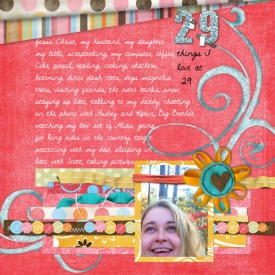 29
things I
love at
29
Jesus Christ, my husband, my daughter,
my bible, scrapbooking, my computer, coffee,
Coke, gospel, reading, cooking, skechers,
learning, diner dash, cats, dogs, magnolia
trees, visiting friends, the outer banks, snow,
staying up late, talking to my daddy, chatting
on the phone with and Karen, Big Brother,
watching my box set of Alias, going
for long rides in the country, target
practicing with my dad, sleeping in
late with Scott, taking pictures